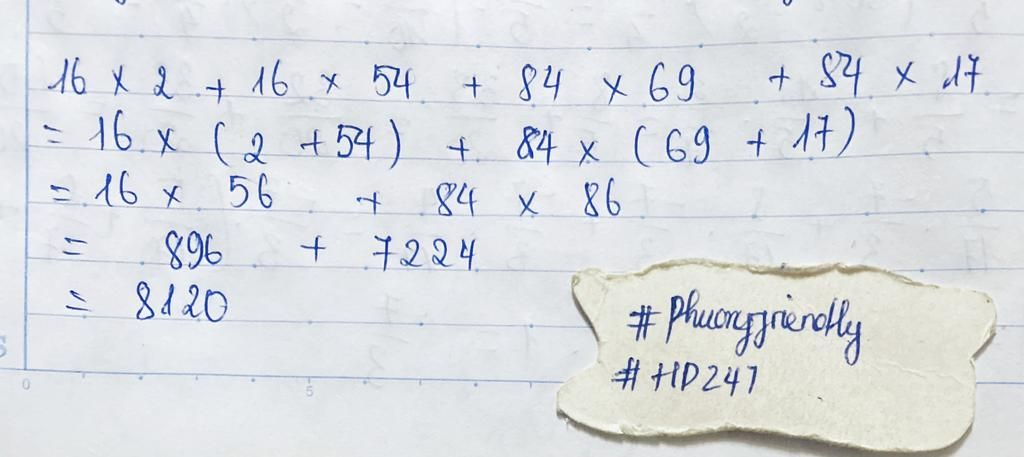 16 × 2 + 16 × 54 + 84 × 69 + 84 × 17
= 16 × (2 + 54) + 84 × (69 + 17)
= 16 × 56 + 84 × 86
= 896 + 7224
= 8120
# Phuongfriendly
# HD247
0 5